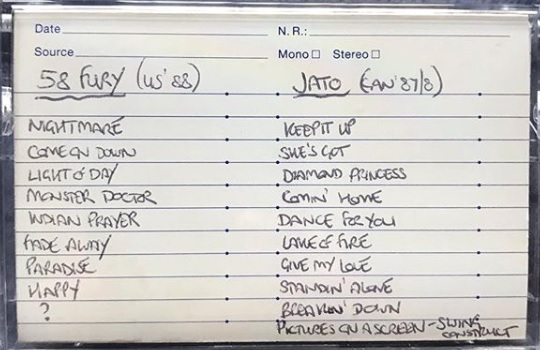 Date
N. R.:
Source
Mono Stereo
58 FURY (US '88)
NIGHTMARE
COME ON DOWN
LIGHT O' DAY
MONSTER DOCTOR
INDIAN PRAYER
FADE AWAY
PARADISE
HAPPY
?
JATO (CAN '87/8)
KEEP IT UP
SHE'S GOT
DIAMOND PRINCESS
COMIN' HOME
DANCE FOR YOU
LAKE OF FIRE
GIVE MY LOVE
STANDIN' ALONE
BREAKIN' DOWN
PICTURES ON A SCREEN - SWING
CONSTRUCT